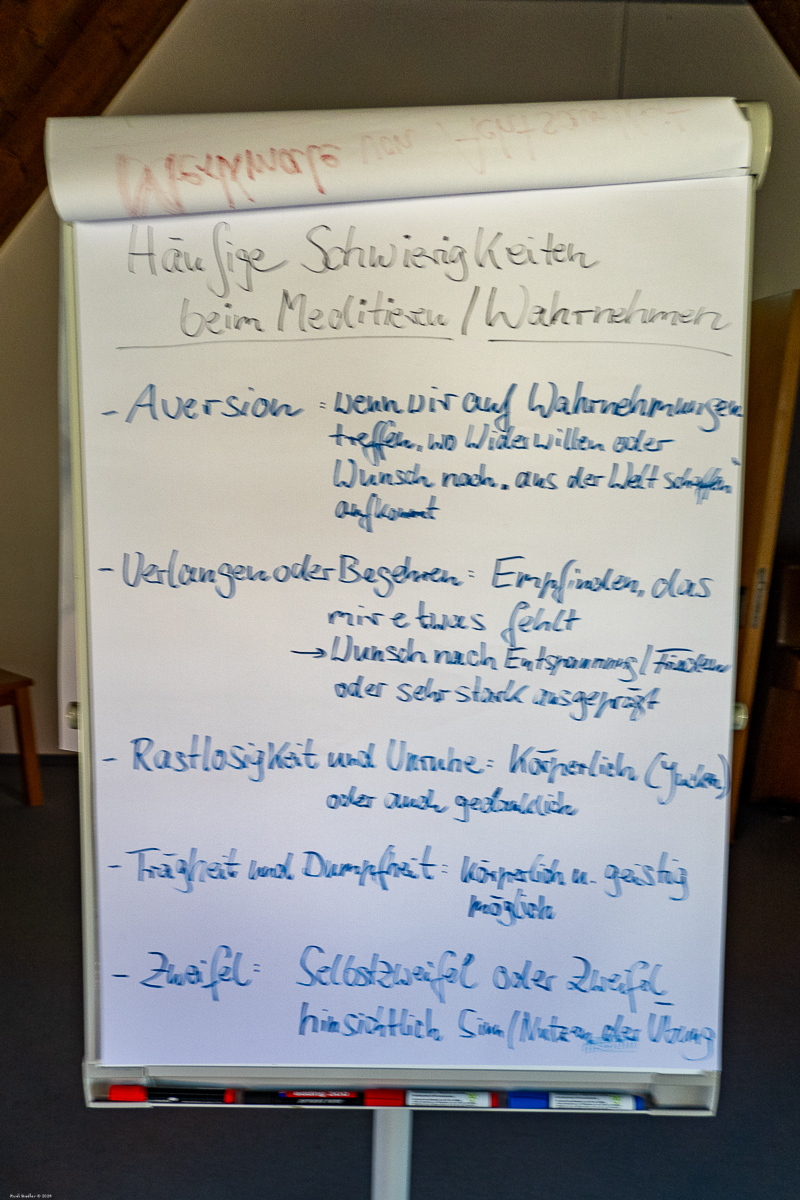 Merkmale von Achtsamkeit
Häufige Schwierigkeiten
beim Meditieren / Wahrnehmen
- Aversion : wenn wir auf Wahrnehmungen
treffen, wo Widerwillen oder
Wunsch nach „aus der Welt schaffen“
aufkommt
- Verlangen oder Begehren : Empfinden, das
mir etwas fehlt
→ Wunsch nach Entspannung /
oder sehr stark ausgeprägt
- Rastlosigkeit und Unruhe : Körperlich (Jucken)
oder auch gedanklich
- Trägheit und Dumpfheit : körperlich u. geistig
möglich
- Zweifel : Selbstzweifel oder Zweifel
hinsichtlich Sinn / Nutzen der Übung